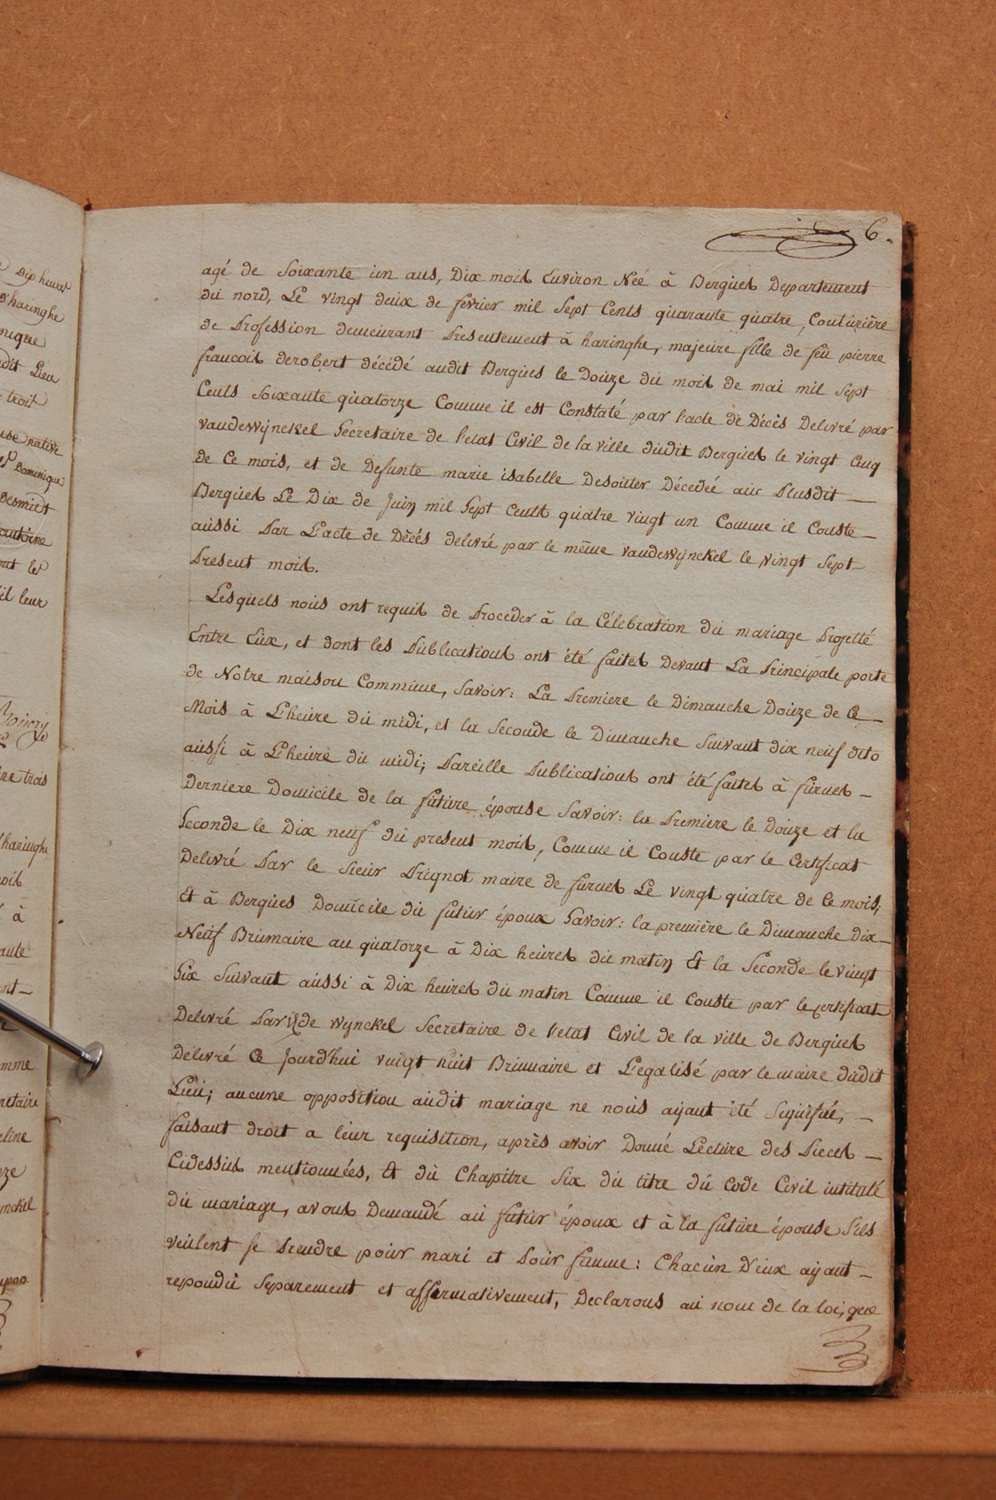 6.
agé de Soixante un ans, Dix mois Environ Née à Bergues Departement
du nord, Le vingt deux de fevrier mil Sept Cents quarante quatre, Couturière
de Profession demeurant Presentement à haringhe, majeure fille de feu pierre
francois derobert décédé audit Bergues le Douze du mois de mai mil Sept
Cents Soixante quatorze Comme il est Constaté par l'acte de Décès Delivré par
vandewÿnckel Secretaire de l'etat Civil de la ville dudit Bergues le vingt Cinq
de Ce mois, et de defunte marie isabelle Desoutter Décedée au Susdit
Bergues Le Dix de Juin mil Sept Cents quatre vingt un Comme il Conste
aussi Par L'acte de Décés delivré par le même vandewÿnckel le vingt Sept
Present mois.
Lesquels nous ont requis de Proceder à la Célébration du mariage Projetté
Entre Eux, et dont les Publications ont été faites Devant La Principale porte
de Notre maison Commune, Savoir: La Premiere le Dimanche Douze de Ce
Mois à L'heure du midi, et la Seconde le Dimanche Suivant dix neuf dito
aussi à L'heure du midi; Pareille Publications ont été faites à furnes
Derniere Domicile de la future épouse Savoir: la Premiere le Douze et la
Seconde le Dix neuf du present mois, Comme il Conste par le Certificat
Delivré Par le Sieur Prignot maire de furnes Le vingt quatre de Ce mois;
Et à Bergues Domicile du futur époux Savoir: la première le Dimanche Dix
Neuf Brumaire an quatorze à Dix heures du matin Et la Seconde le vingt
Six Suivant aussi à Dix heures du matin Comme il Conste par le certificat
Delivré Par de Wÿnckel Secretaire de l'etat Civil de la ville de Bergues
Délivré Ce Jourd'hui vingt huit Brumaire et Légalisé par le maire dudit
Lieu; aucune opposition audit mariage ne nous aÿant été Signifiée,
faisant droit a leur requisition, après avoir Donné Lecture des Pieces
Cidessus mentionnées, Et du Chapitre Six du titre du Code Civil intitulé
du mariage, avons Demandé au futur époux et à la future épouse S'ils
veulent se Prendre pour mari et Pour famme: Chacun D'eux aÿant
repondu Separement et affirmativement, Declarons au nom de la loi, que